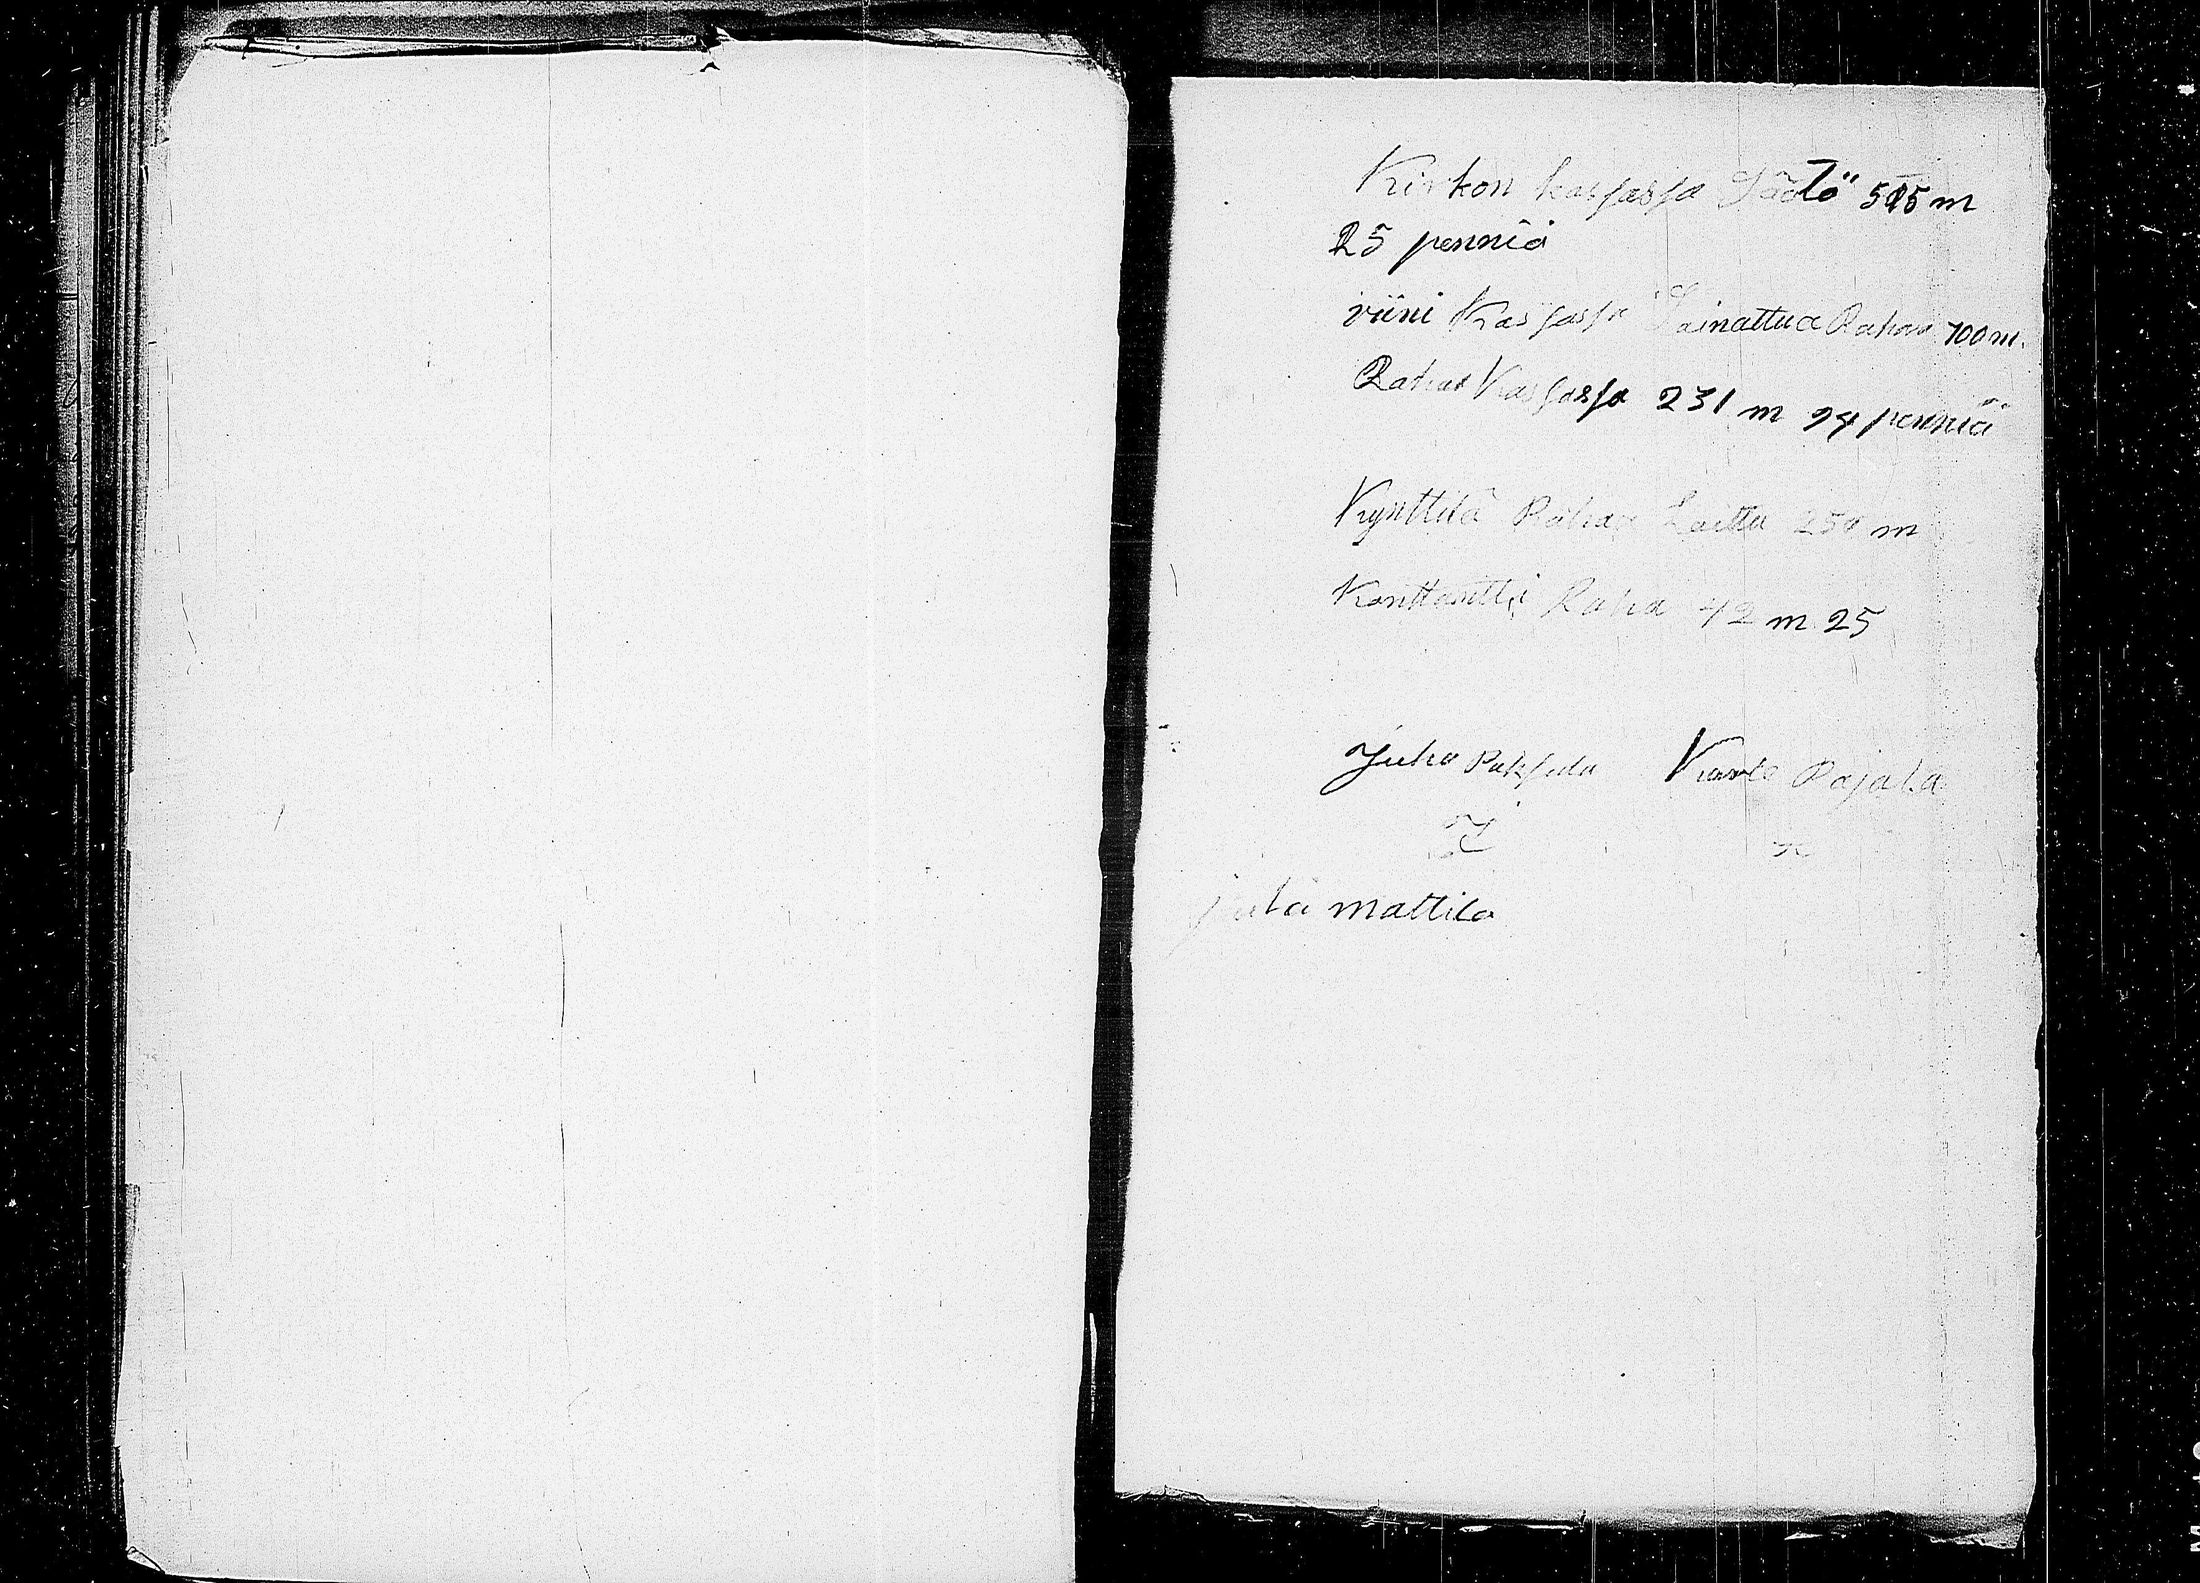 Kirkon kassassa Säätö 515 m
25 penniä
viini Kassassa Lainattua Rahaa 100 m.
Rahaa Kassassa 231 m 94 penniä
Kynttilä Rahaa Laittu 250 m
Konttantti Raha 42 m 25
Juho Kaarlo Pajala
mattila